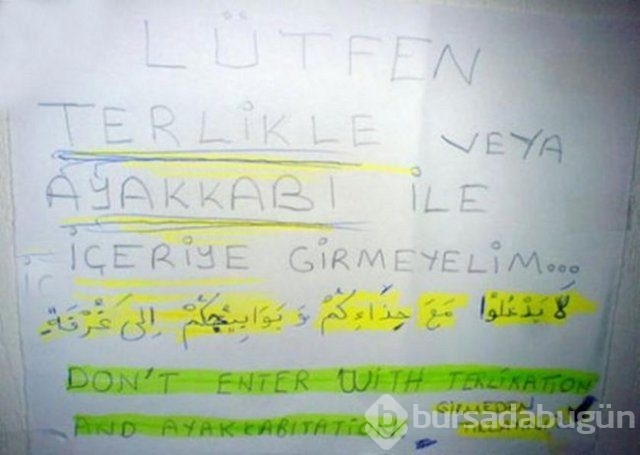 LÜTFEN
TERLİKLE VEYA
AYAKKABI İLE
İÇERİYE GİRMEYELİM...
لَا يَدْخُلُوا مَعَ حِذَاءِكُمْ وَ بَوَابِيجُكُمْ اِلَى غُرْفَةٍ
DON'T ENTER WITH TERLIKATION
AND AYAKKABITATION
bursadabugün